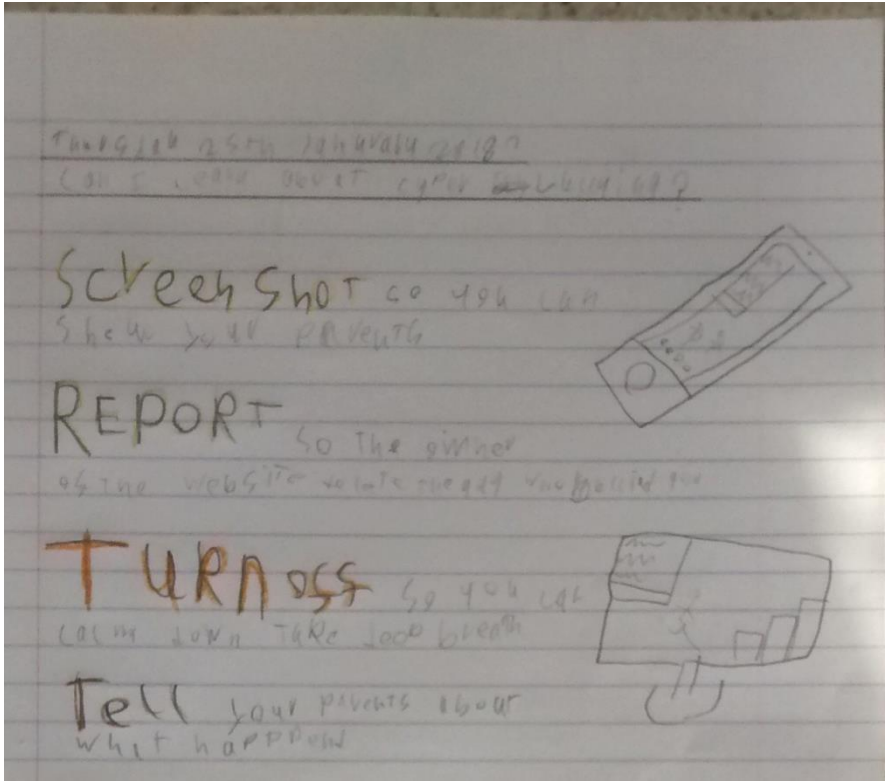 25th January 2018
Can I learn about cyber
ScreenShot so you can
Show your parents
REPORT so the owner
of the website
TURN off so you can
calm down Take deep breath
Tell your parents about
what happpend